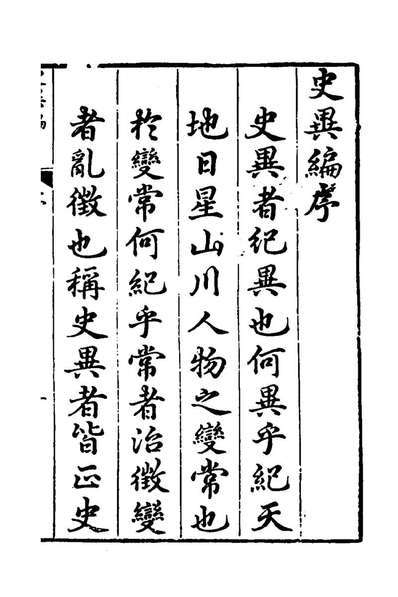 史異編序
史異者紀異也何異乎紀天
地日星山川人物之變常也
於變常何紀乎常者治徵變
者亂徵也稱史異者皆正史